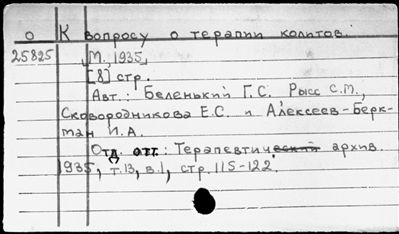 О К вопросу о терапии колитов.
25825 М., 1935,
[8] стр.
Авт.: Беленький Г.С. Рысс С.М.,
Сковородникова Е.С. и Алексеев-Берк-
ман И.А.
Отд. отт.: Терапевтический архив.
1935, т.13, в.1, стр. 115-122.